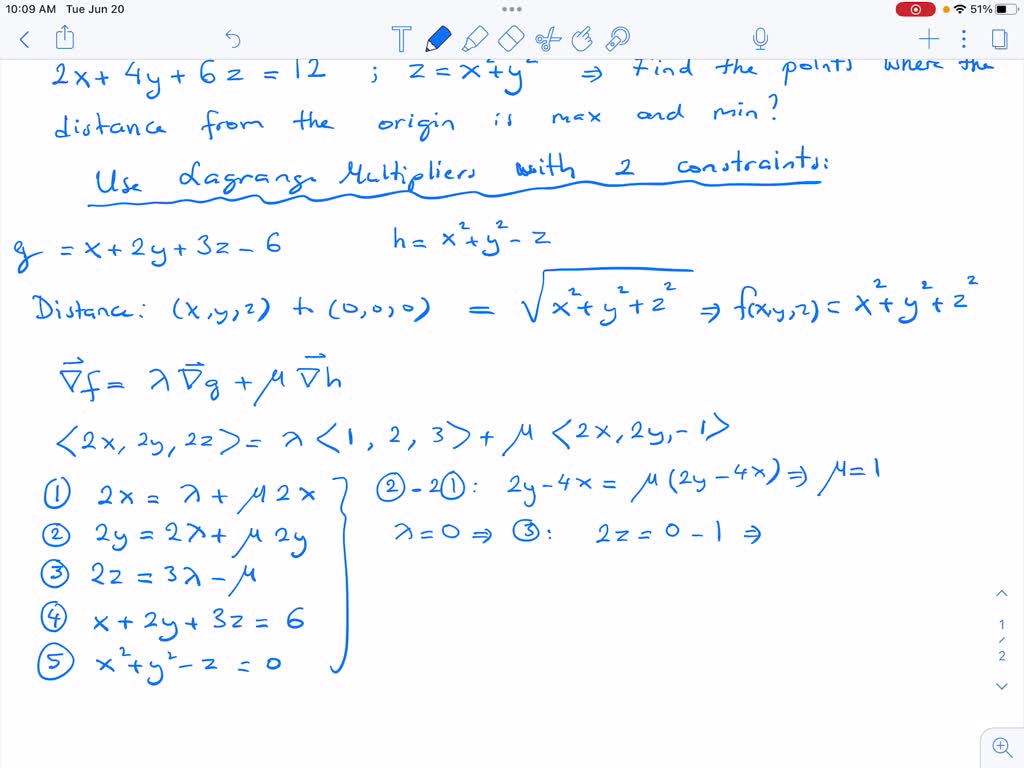 10:09 AM Tue Jun 20 51%
2x + 4y + 6z = 12 ; z = x²+y² ⇒ Find the points where the
distance from the origin is max and min?
Use Lagrange Multipliers with 2 constraints:
g = x + 2y + 3z - 6 h = x² + y² - z
Distance: (x,y,z) to (0,0,0) = √(x² + y² + z²) ⇒ f(x,y,z) = x² + y² + z²
∇⃗f = λ ∇⃗g + μ ∇⃗h
<2x, 2y, 2z> = λ <1, 2, 3> + μ <2x, 2y, -1>
① 2x = λ + μ 2x
② 2y = 2λ + μ 2y
③ 2z = 3λ - μ
④ x + 2y + 3z = 6
⑤ x² + y² - z = 0
② - 2①: 2y - 4x = μ (2y - 4x) ⇒ μ = 1
λ = 0 ⇒ ③: 2z = 0 - 1 ⇒
1
/
2